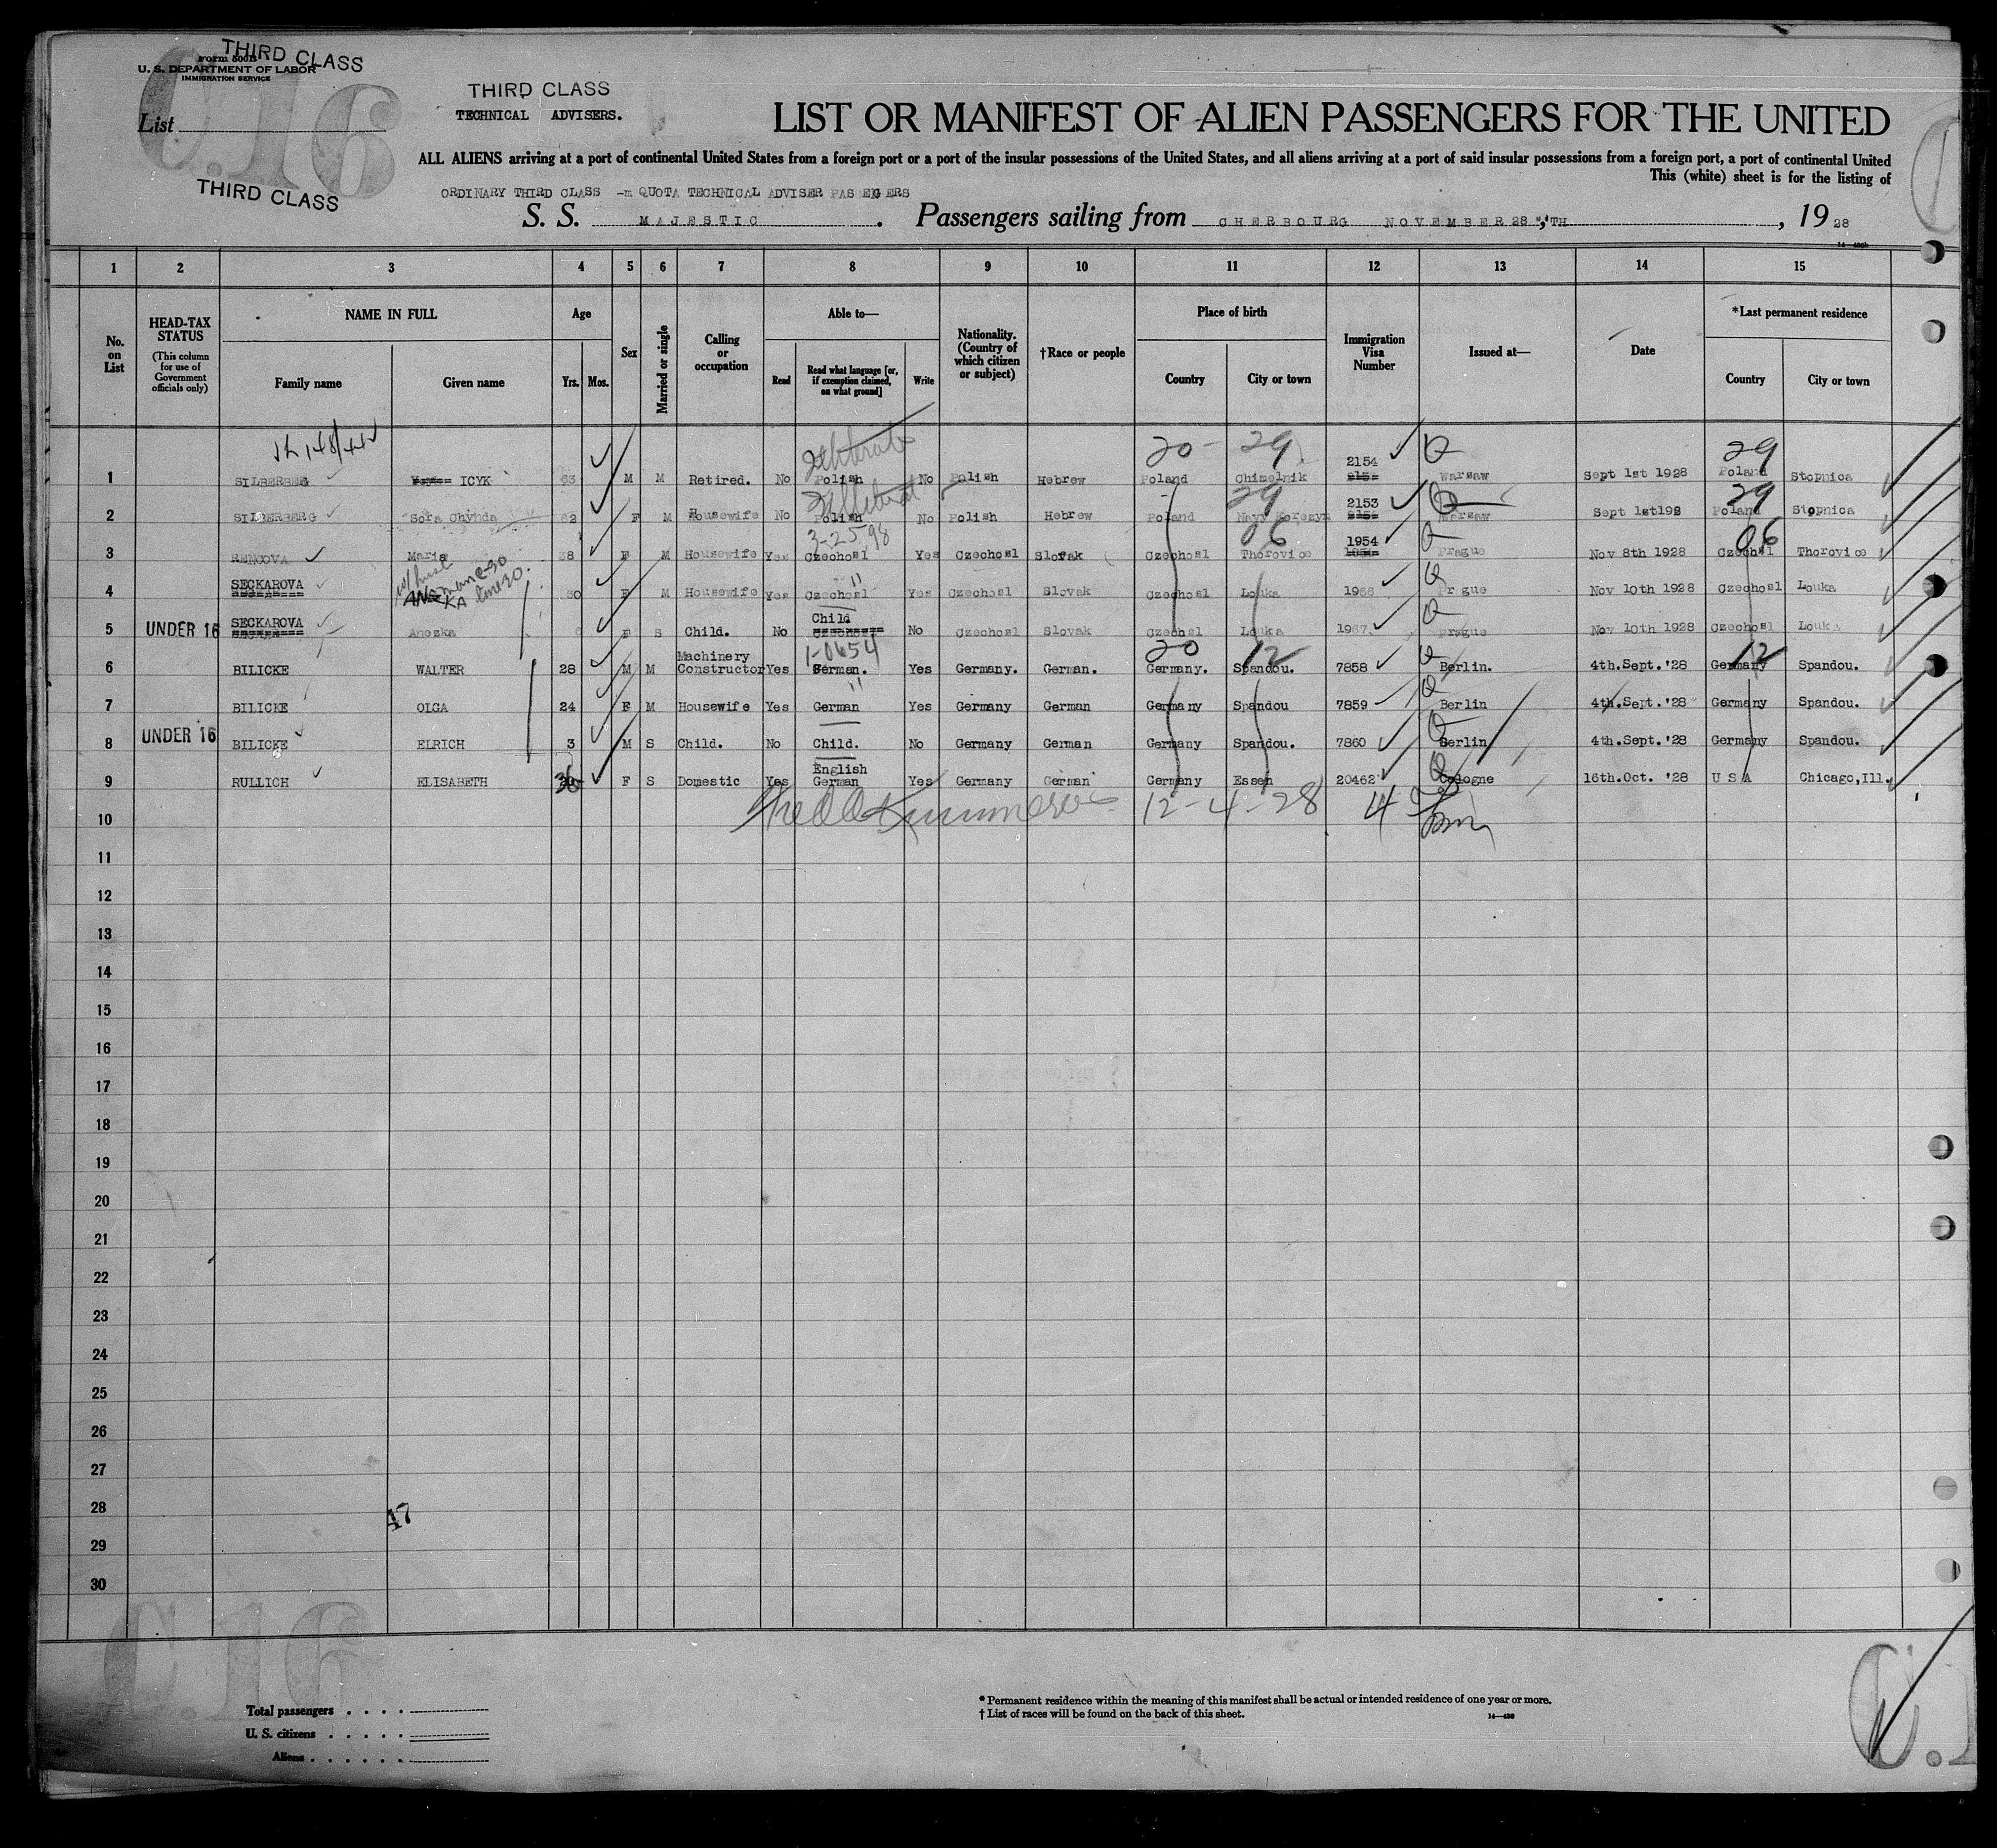 THIRD CLASS
Form 500B
U. S. DEPARTMENT OF LABOR
IMMIGRATION SERVICE
C.16
THIRD CLASS
TECHNICAL ADVISERS.
List
LIST OR MANIFEST OF ALIEN PASSENGERS FOR THE UNITED
ALL ALIENS arriving at a port of continental United States from a foreign port or a port of the insular possessions of the United States, and all aliens arriving at a port of said insular possessions from a foreign port, a port of continental United
This (white) sheet is for the listing of
THIRD CLASS
ORDINARY THIRD CLASS QUOTA TECHNICAL ADVISER PASENGERS
S. S. MAJESTIC. Passengers sailing from CHERBOURG NOVEMBER 28 TH, 1928
1 2 3 4 5 6 7 8 9 10 11 12 13 14 15
No. on List
HEAD-TAX STATUS (This column for use of Government officials only)
NAME IN FULL
Family name Given name
Age
Yrs. Mos.
Sex
Married or single
Calling or occupation
Able to—
Read Read what language [or, if exemption claimed, on what ground] Write
Nationality. (Country of which citizen or subject)
†Race or people
Place of birth
Country City or town
Immigration Visa Number
Issued at—
Date
*Last permanent residence
Country City or town
20 - 29 29
1 SILBERBERG ICYK 63 M M Retired. No Polish No Polish Hebrew Poland Chimelnik 2154 Warsaw Sept 1st 1928 Poland Stopnica
29 29
2 SILBERBERG Sora Chynda 62 F M Housewife No Polish No Polish Hebrew Poland Navy Korczyn 2153 Warsaw Sept 1st192 Poland Stopnica
3-25-98 06 06
3 RENCOVA Maria 38 F M Housewife Yes Czechosl Yes Czechosl Slovak Czechosl Thorovice 1954 Prague Nov 8th 1928 Czechosl Thorovice
4 SECKAROVA KA 30 F M Housewife Yes Czechosl Yes Czechosl Slovak Czechosl Louka 1966 Pr gue Nov 10th 1928 Czechosl Louka
5 UNDER 16 SECKAROVA Anezka 6 F S Child. No Child No Czechosl Slovak Czechosl Louka 1967 Prague Nov 10th 1928 Czechosl Louka
1-0654 20 12 12
6 BILICKE WALTER 28 M M Machinery Constructor Yes German. Yes Germany. German. Germany. Spandou. 7858 Berlin. 4th.Sept.'28 Germany Spandou.
7 BILICKE OLGA 24 F M Housewife Yes German Yes Germany German Germany Spandou 7859 Berlin 4th.Sept.'28 Germany Spandou.
8 UNDER 16 BILICKE ELRICH 3 M S Child. No Child. No Germany German Germany Spandou. 7860 Berlin 4th.Sept.'28 Germany Spandou.
9 RULLICH ELISABETH F S Domestic Yes English German Yes Germany German Germany Essen 20462 Cologne 16th.Oct. '28 U S A Chicago,Ill.
10 12-4-28
11
12
13
14
15
16
17
18
19
20
21
22
23
24
25
26
27
28
47
29
30
C.16
Total passengers
U. S. citizens
Aliens
* Permanent residence within the meaning of this manifest shall be actual or intended residence of one year or more.
† List of races will be found on the back of this sheet.